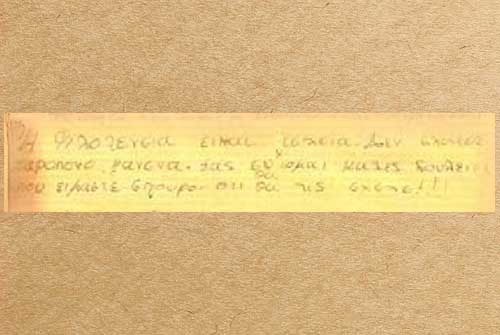 Η Φιλοξενεια ειναι τελεια. Δεν εχουμε
παραπονο κανενα. Σας ευχομαι καλες δουλειες
που ειμαστε σιγουροι οτι θα τις εχετε!!!